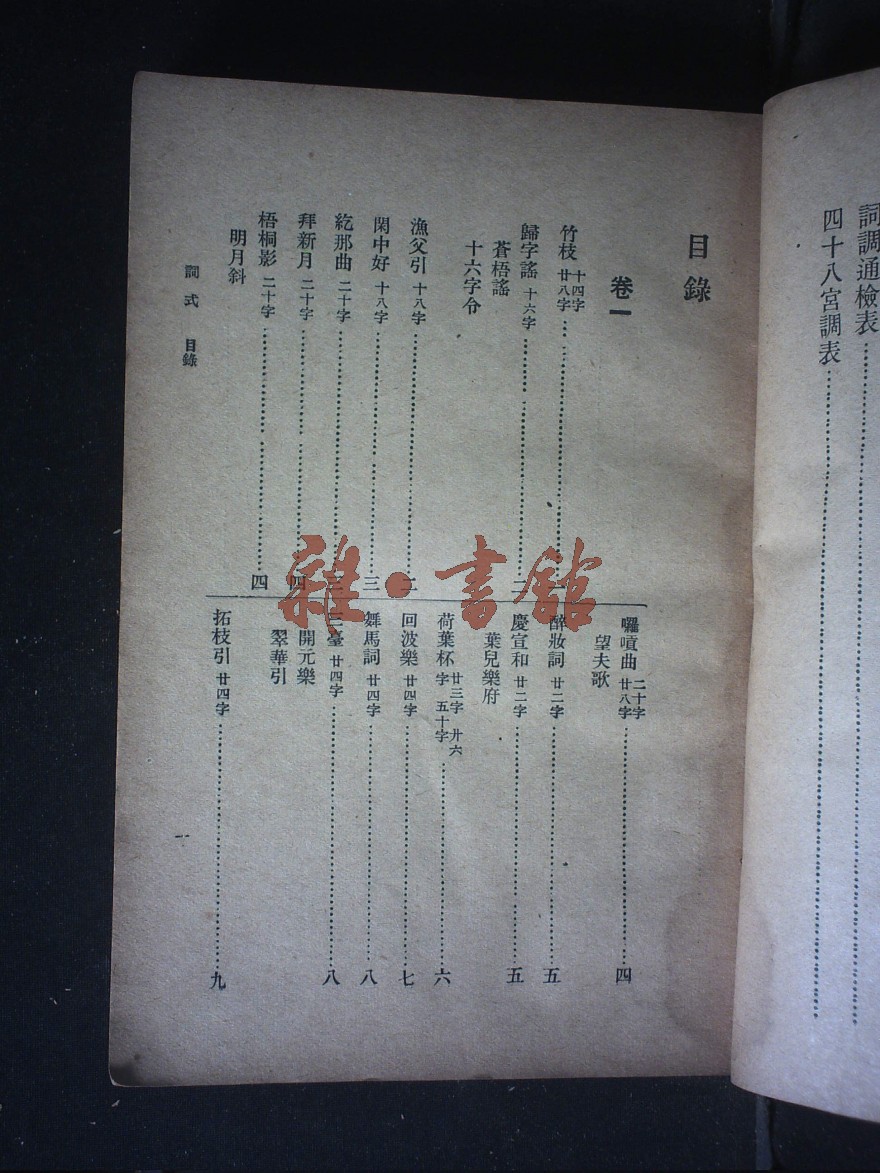 詞調通檢表
四十八宮調表
目錄
卷一
竹枝 十四字 廿八字
歸字謠 十六字 二
蒼梧謠
十六字令
漁父引 十八字 二
閑中好 十八字 三
紇那曲 二十字 三
拜新月 二十字 四
梧桐影 二十字 四
明月斜
詞式 目錄
囉嗊曲 二十字 廿八字 四
望夫歌
醉妝詞 廿二字 五
慶宣和 廿二字 五
葉兒樂府
荷葉杯 廿三字 廾六字 五十字 六
回波樂 廿四字 七
舞馬詞 廿四字 八
三臺 廿四字 八
開元樂
翠華引
拓枝引 廿四字 九
雜·書館